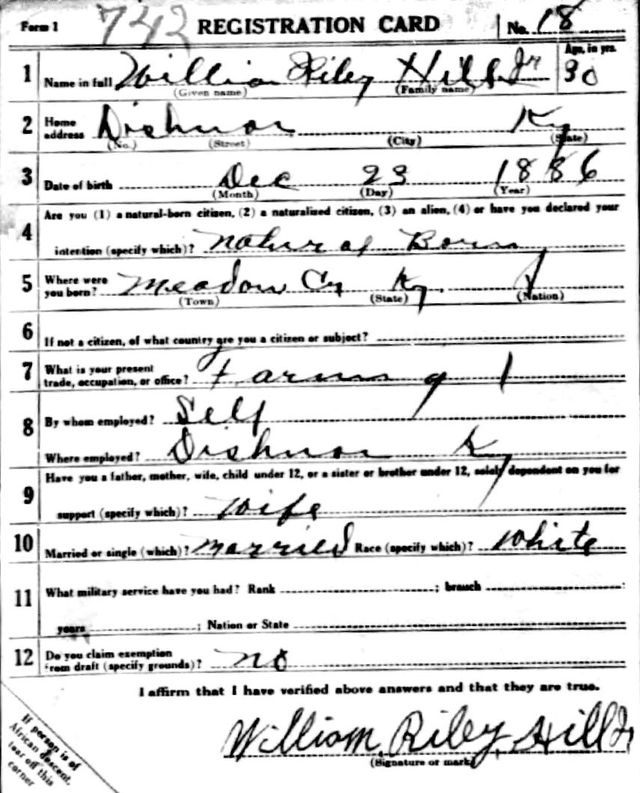 Form 1 743 REGISTRATION CARD No. 18
1 Name in full William Riley Hill Jr Age, in yrs. 30
(Given name) (Family name)
2 Home address Dishman Ky
(No.) (Street) (City) (State)
3 Date of birth Dec 23 1886
(Month) (Day) (Year)
4 Are you (1) a natural-born citizen, (2) a naturalized citizen, (3) an alien, (4) or have you declared your
intention (specify which)? Natural Born
5 Where were you born? Meadow Cr Ky
(Town) (State) (Nation)
6 If not a citizen, of what country are you a citizen or subject?
7 What is your present trade, occupation, or office? Farming
8 By whom employed? Self
Where employed? Dishman Ky
9 Have you a father, mother, wife, child under 12, or a sister or brother under 12, solely dependent on you for
support (specify which)? Wife
10 Married or single (which)? Married Race (specify which)? White
11 What military service have you had? Rank ; branch
years ; Nation or State
12 Do you claim exemption from draft (specify grounds)? no
I affirm that I have verified above answers and that they are true.
If person is of
African descent,
tear off this
corner
William Riley Hill Jr
(Signature or mark)